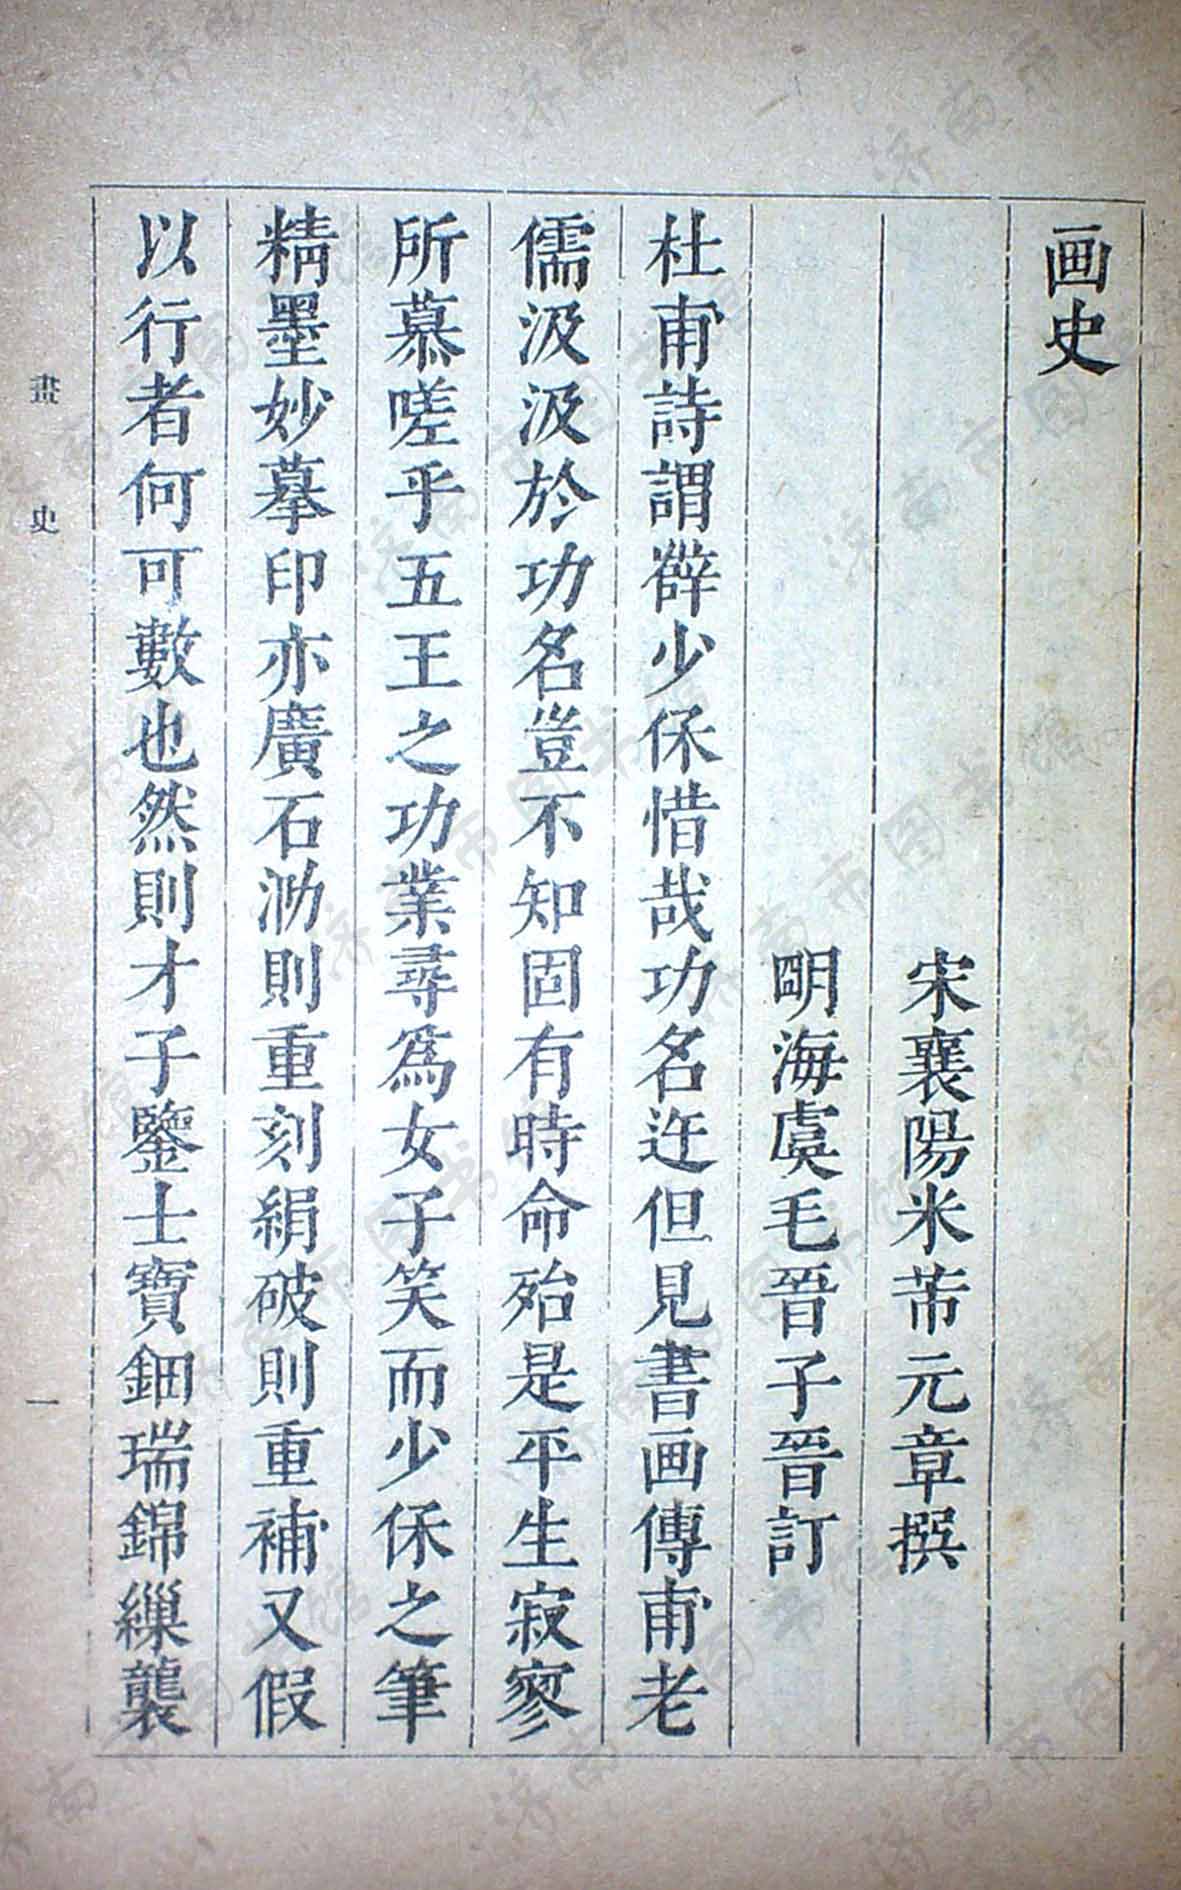 画史
宋襄陽米芾元章撰
明海虞毛晉子晉訂
杜甫詩謂薛少保惜哉功名迕但見書画傳甫老
儒汲汲於功名豈不知固有時命殆是平生寂寥
所慕嗟乎五王之功業尋爲女子笑而少保之筆
精墨妙摹印亦廣石泐則重刻絹破則重補又假
以行者何可數也然則才子鑒士寶鈿瑞錦繅襲
畫史
一
济南市图书馆